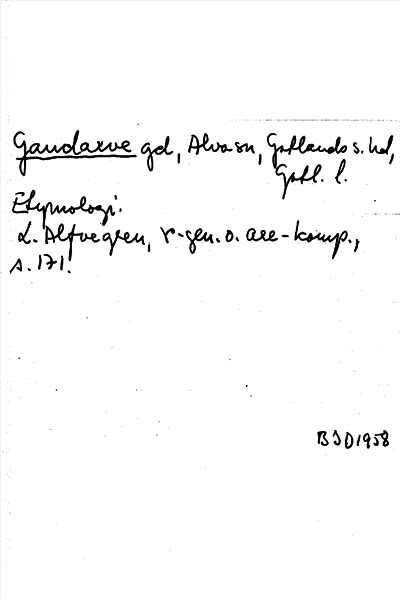 Gandarve gd, Alva sn, Gotlands s. hd,
Gotl. l.
Etymologi.
L. Alfvegren, r-gen. o. are-komp.,
s. 171.
BID 1958